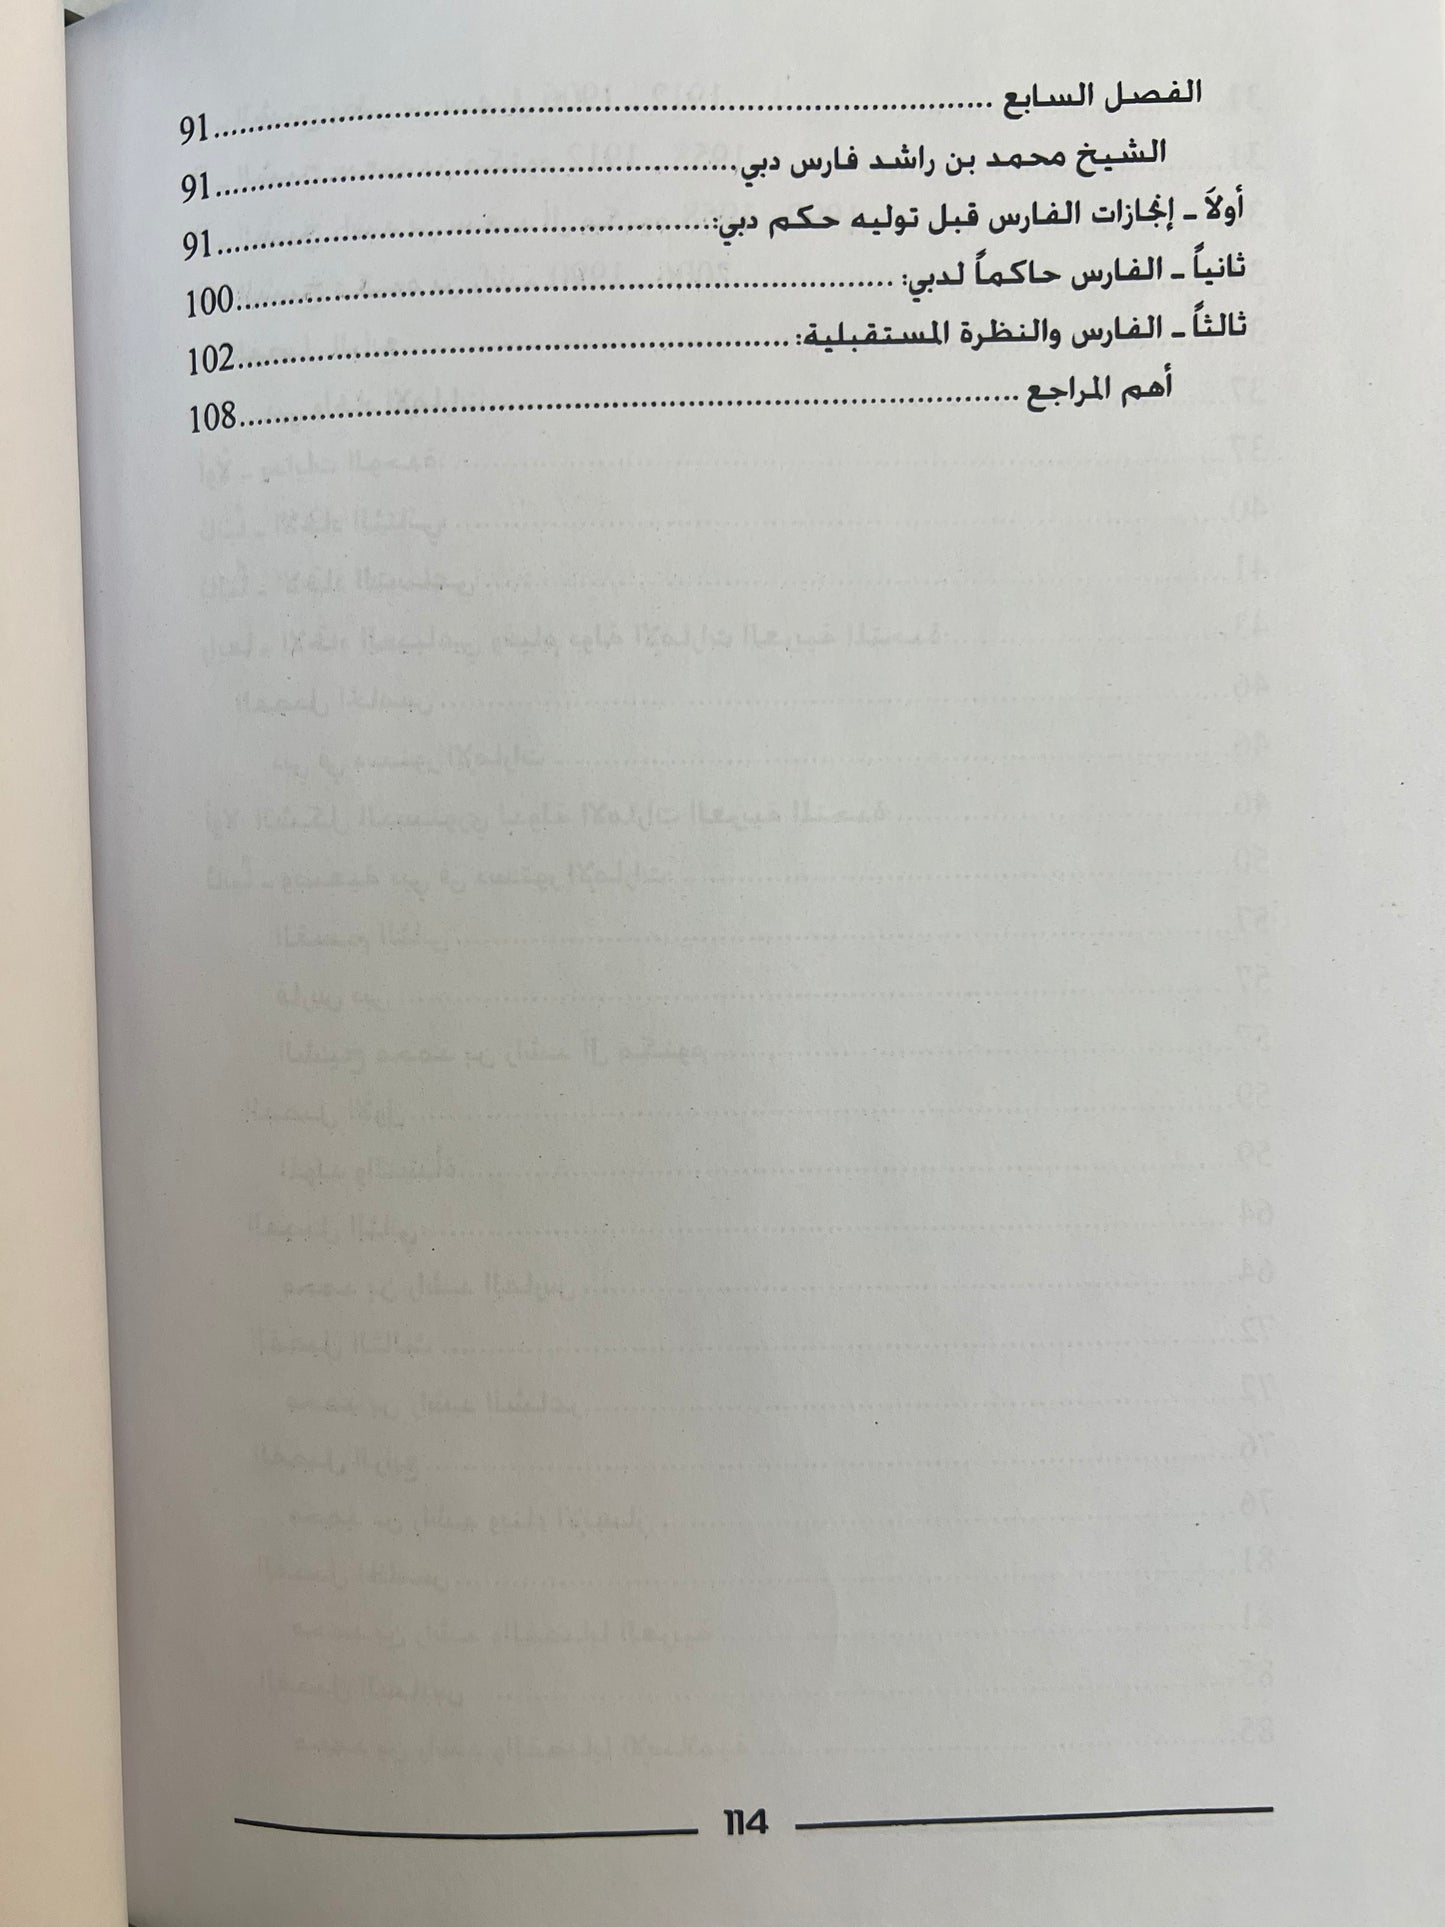 الفصل السابع ........ 91
الشيخ محمد بن راشد فارس دبي ........ 91
أولاً ـ إنجازات الفارس قبل توليه حكم دبي: ........ 91
ثانياً ـ الفارس حاكماً لدبي: ........ 100
ثالثاً ـ الفارس والنظرة المستقبلية: ........ 102
أهم المراجع ........ 108
114